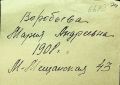 Воробьева
Мария Андреевна
1908г.
М-Мещанская 43